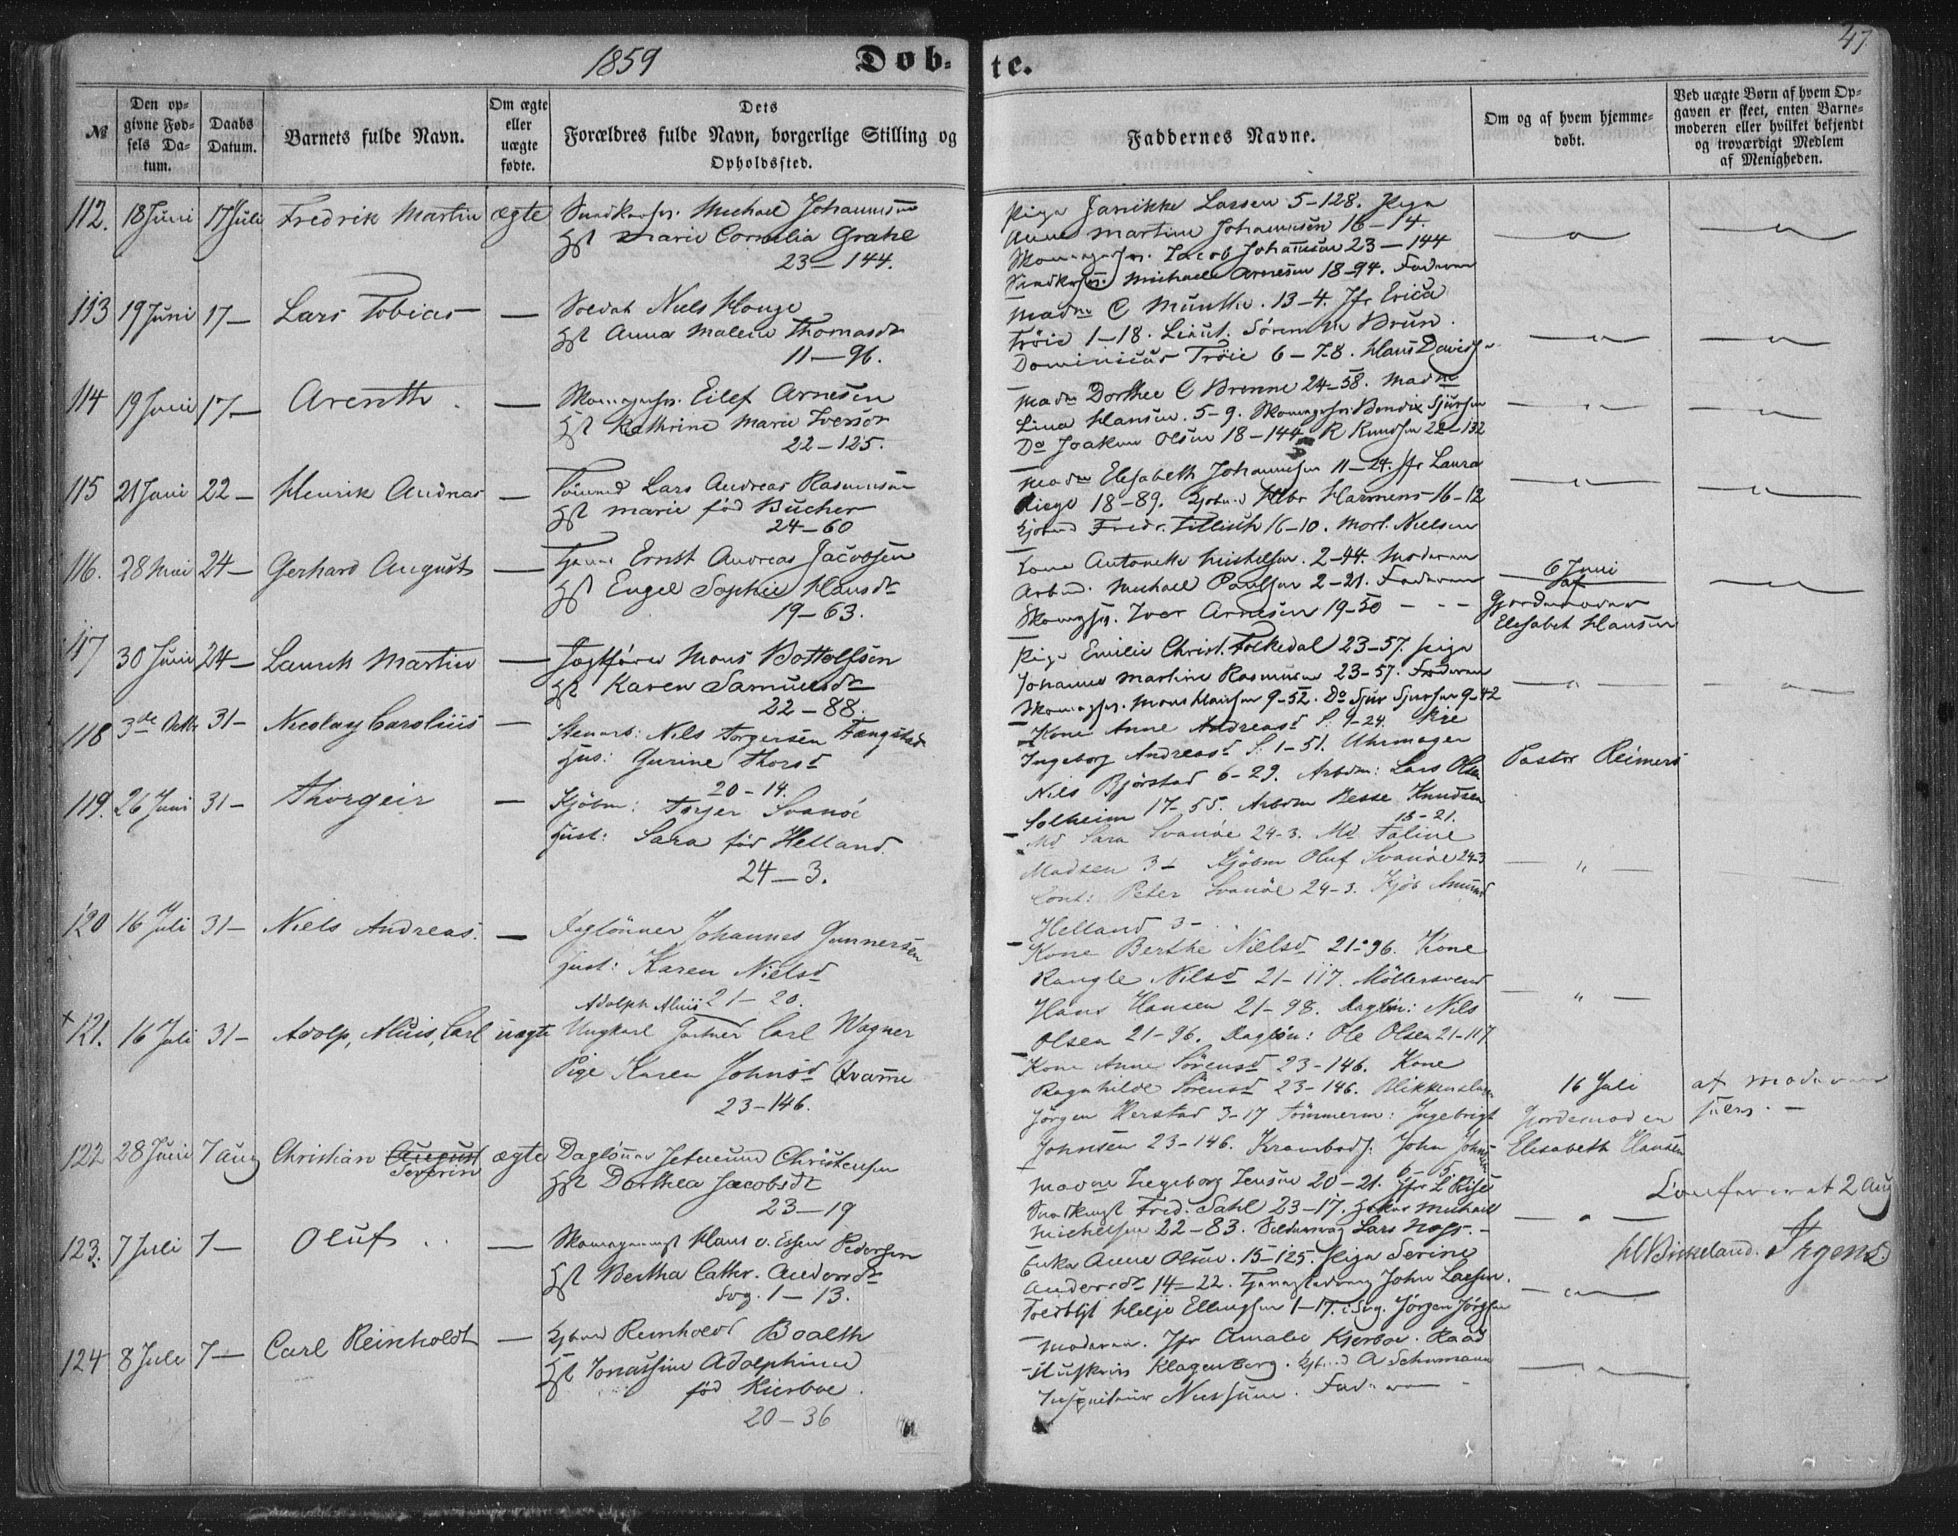 1859
Døb-
te.
47
№
Den op-
givne Fød-
sels Da-
tum.
Daabs
Datum.
Barnets fulde Navn.
Om ægte
eller
uægte
fødte.
Dets
Forældres fulde Navn, borgerlige Stilling og
Opholdssted.
Faddernes Navne.
Om og af hvem hjemme-
døbt.
Ved uægte Børn af hvem Op-
gaven er skeet, enten Barne-
moderen eller hvilket bekjendt
og troværdigt Medlem
af Menigheden.
112. 18 Juni 17 Juli Fredrik Martin ægte
Michael Johannesen
Marie Cornelia Grahl
23-144.
Pige Janikke Larsen 5-128. Pige
Anne Martine Johannesen 16-14.
Jacob Johannesen 23-144
Michael Arnesen 18-94. Faderen
113 19 Juni 17- Lars Tobias -
Soldat Niels Houge
Hst Anna Malene Thomasdr
11-96.
Madme C Munthe. 13-4. Jfr Erica
Trøie 1-18. Lieut. Brun.
Dominicus Trøie 6-78. Hans
114 19 Juni 17- Arenth -
Eilef Arnesen
Hst Kathrine Marie
22-125.
Madm Dorthee C Brenne 24-58. Madme
Lina Hansen. 5-9. Bendix Sjursen
Do Joakim Olsen 18-144 R Knudsen 22-132
115 21 Juni 22- Henrik Andreas -
Lars Andreas Rasmussen
Hst Marie fød Bucher
24-60
Madm Elisabeth Johannesen 11-24. Jfr Laura
Riege 18-89. Harmens 16-12
Fredr. 16-10. Mort. Nielsen
116. 28 Mai 24- Gerhard August -
Ernst Andreas Jacobsen
Hst Engel Sophie Hansdr
19-63.
Kone Antonette Mickelsen. 2-44. Moderen
Michael Paulsen 2-21. Faderen
Iver Arnesen 19-50 - - -
6 Juni
af
Gjordemoder
Elisabet Hansen
117 30 Juni 24- Laurits Martin -
Jægtfører Mons Bottolfsen
Hst Karen Samuelsdr
22-88.
Pige Emilie Christ. Folkedal 23-57. Pige
Johanne Martine Rasmussen 23-57. Faderen
Mons Hansen 9-52. Do Sjur Sjursen 9-42
118 31- Nicolay Carolius -
Stenarb: Nils Torgersen
Hus: Gurine Thorsd
20-14.
Kone Anne Andreasd S. 9-24. Pige
Ingeborg Andreasd S. 1-51. Uhrmager
Nils Bjørstad 6-29. Arbdm: Lars Olsen
Solheim 17-55. Arbdm Besse Knudsen
13-21.
Pastor Reimers
119. 26 Juni 31- Thorgeir -
Kjøbm: Torger Svanøe
Hust: Sara fød Helland.
24-3.
Md Sara Svanøe 24-3. Md Taline
Madsen 3- Kjøbm Oluf Svanøe 24-3
Cont: Peter Svanøe 24-3. Kjøb Amund
Helland 3-
120 16 Juli 31- Niels Andreas. -
Daglønner Johannes Gunnersen
Hust: Karen Nielsd
21-20.
Kone Berthe Nielsd 21-96. Kone
Rangle Nilsd 21-117. Møllersvend
Hans Hansen 21-98. Daglön: Nils
Olsen 21-96. Daglön: Ole Olsen 21-117
+ 121. 16 Juli 31- Adolp, Aluis, Carl uægte
Adolph Aluis
Ungkarl Gartner Carl Wagner
Pige Karen Johnsd Qvamme
23-146.
Kone Anne Sörensd 23-146. Kone
Ragnhilde Sörensd 23-146.
Jörgen Herstad 3-17 Tömmerm: Ingebrigt
Johnsen 23-146. Krambodf: John Johnsen
6-5.
16 Juli
Gjordemoder
Elisabeth Hansen
af Moderen
122 28 Juni 7 Aug Christian August Severin ægte
Daglønner Christensen
Hst Dorthea Jacobsdr
23-19
Madme Ingeborg Jensen 20-21. Jfr L Riise
Fred. Sahl 23-17. Michael
Michelsen 22-83. Lars
Confereret 2 Aug
H Birkeland. Irgens.
123. 7 Juli 7- Oluf -
Hans v. Essen Pedersen
Hst Bertha Cathr. Andersdr
Sog. 1-13.
Enke Anne Olsen. 15-125. Pige Serine
Andersdr 14-22. John Larsen.
Helje Ellingsen 1-17. Jörgen
124 8 Juli 7- Carl Reinholdt -
Reinhold Boalth
Hst Adolphine
fød Kierboe.
20-36
Moderen. Jfr Amalie Kjerboe. Raad
Klagenberg. A Schumann
Faderen